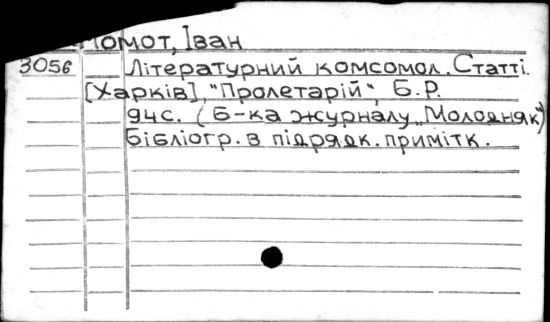 Момот, Іван
3056 Літературний комсомол. Статті.
[Харків], "Пролетарій", Б.Р.
94с. (Б-ка журналу „Молодняк")
Бібліогр. в підрядк. примітк.